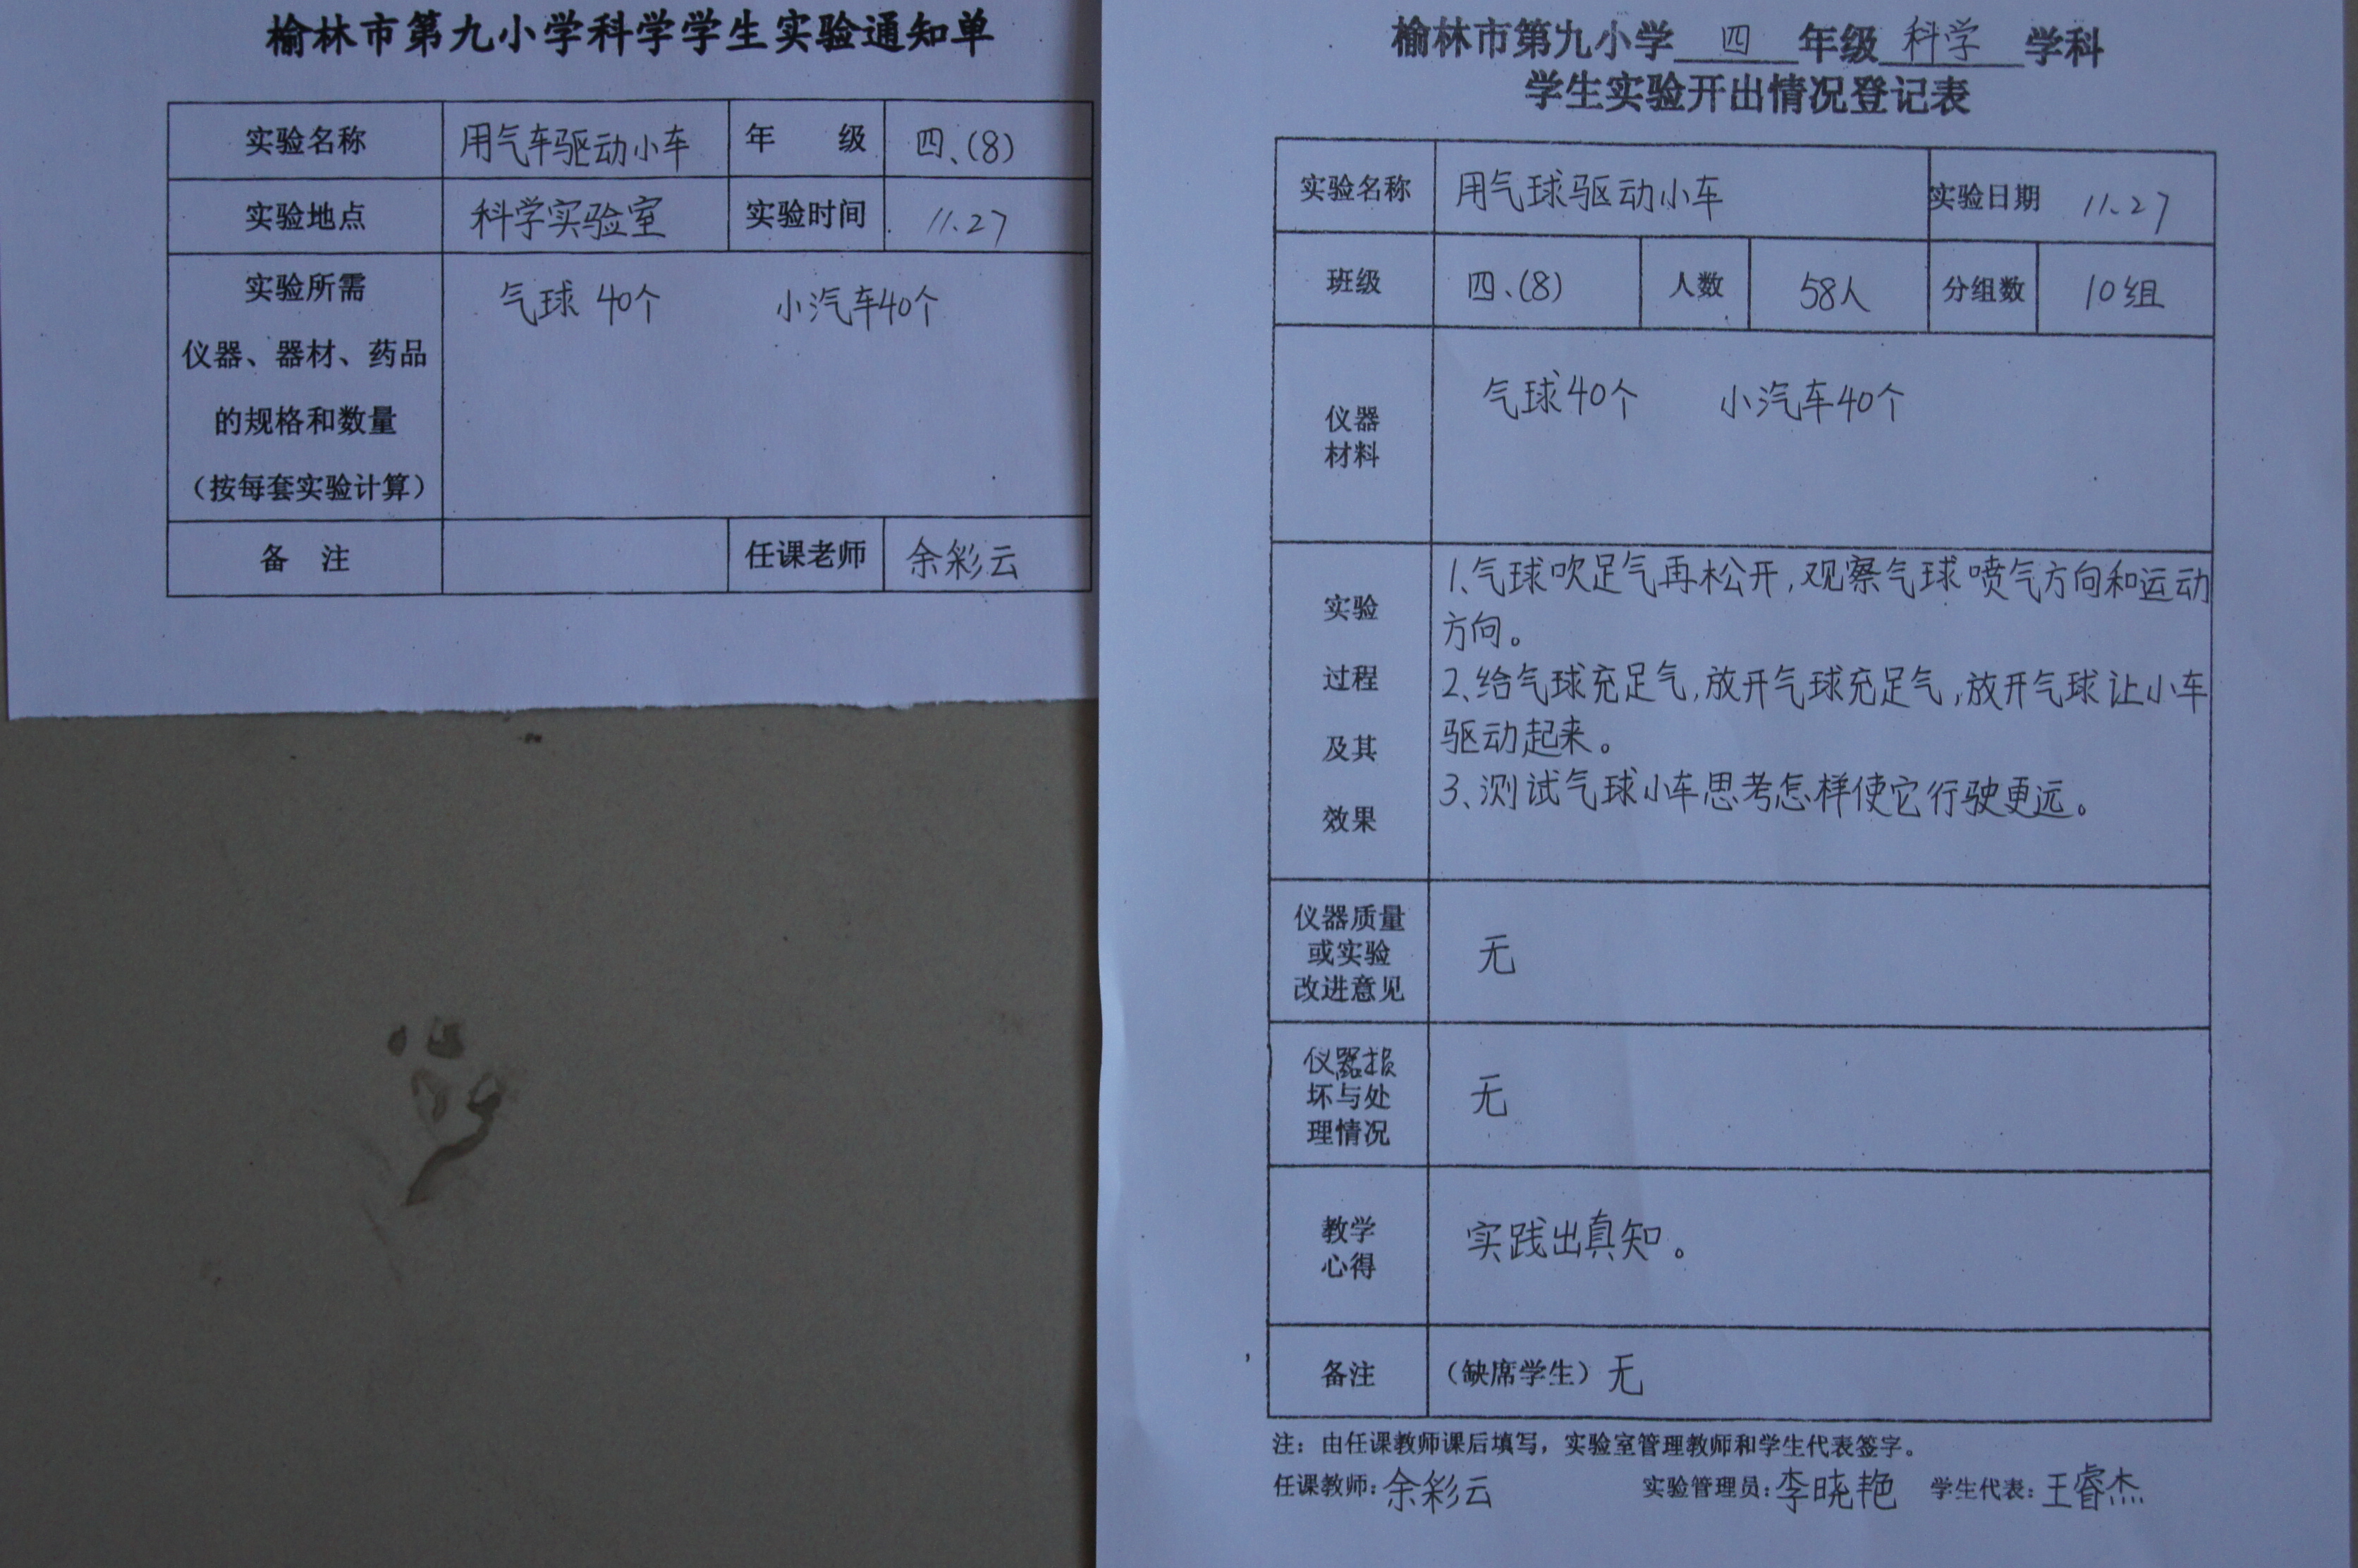 榆林市第九小学科学学生实验通知单
实验名称 用气车驱动小车 年 级 四、(8)
实验地点 科学实验室 实验时间 11.27
实验所需
仪器、器材、药品
的规格和数量
（按每套实验计算）
气球 40个 小汽车40个
备 注 任课老师 余彩云
榆林市第九小学 四 年级 科学 学科
学生实验开出情况登记表
实验名称 用气球驱动小车 实验日期 11.27
班级 四、(8) 人数 58人 分组数 10组
仪器
材料
气球40个 小汽车40个
实验
过程
及其
效果
1、气球吹足气再松开,观察气球喷气方向和运动
方向。
2、给气球充足气,放开气球充足气,放开气球让小车
驱动起来。
3、测试气球小车思考怎样使它行驶更远。
仪器质量
或实验
改进意见
无
仪器损
坏与处
理情况
无
教学
心得
实践出真知。
备注 （缺席学生）无
注：由任课教师课后填写，实验室管理教师和学生代表签字。
任课教师：余彩云 实验管理员：李晓艳 学生代表：王睿杰